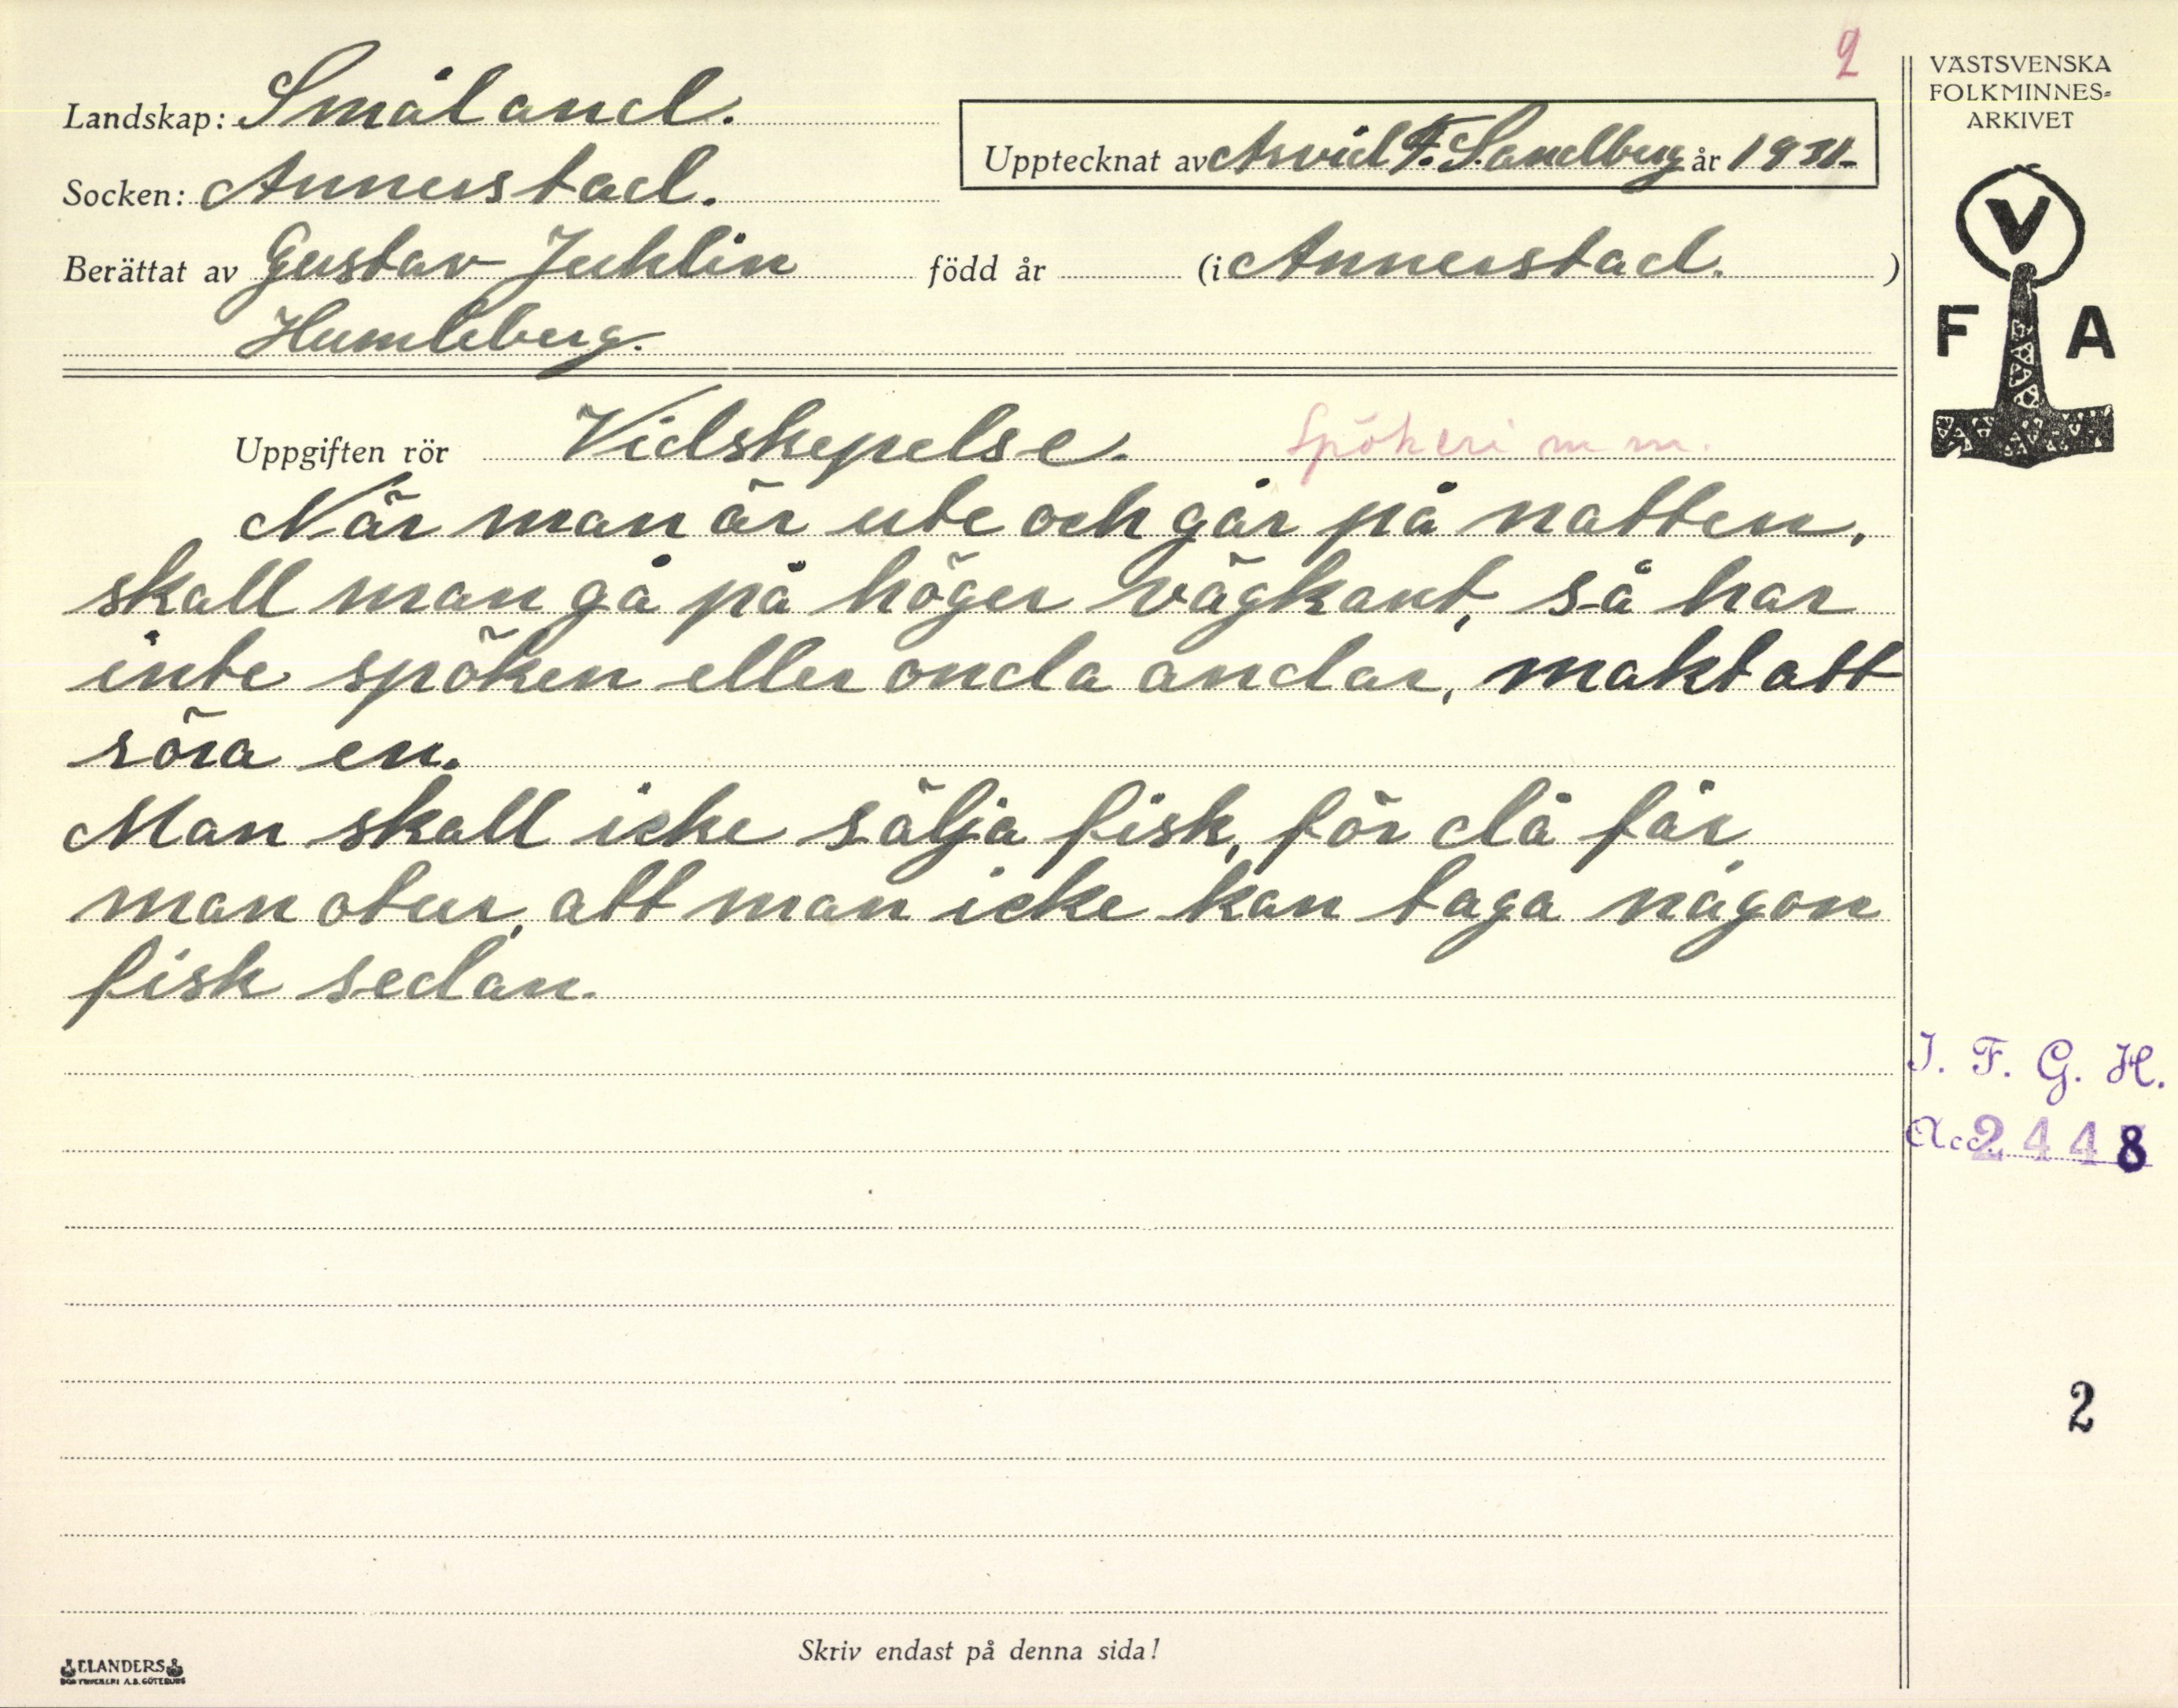 2
Landskap: Småland.
Socken: Annerstad.
Upptecknat av Arvid F. Sandberg år 1931.
Berättat av Gustav Juhlin född år (i Annerstad. )
Humleberg.
Uppgiften rör Vidskepelse. Spökeri m m.
När man är ute och går på natten,
skall man gå på höger vägkant, så har
inte spöken eller onda andar, makt att
röra en.
Man skall icke sälja fisk, för då får
man otur, att man icke kan taga någon
fisk sedan.
Skriv endast på denna sida!
ELANDERS
BOKTRYCKERI A.B. GÖTEBORG
VÄSTSVENSKA
FOLKMINNES-
ARKIVET
V
F A
I. F. G. H.
Acc. 2448
2